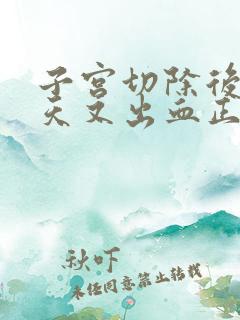 子宫切除後
天又出血正
秋吓
未经同意禁止转载